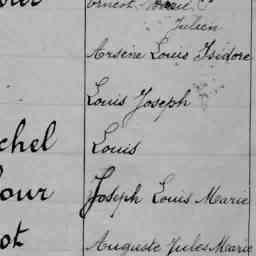 Julien
Arsène Louis Isidore
Louis Joseph
chel Louis
our Joseph Louis Marie
ot Auguste Jules Marie